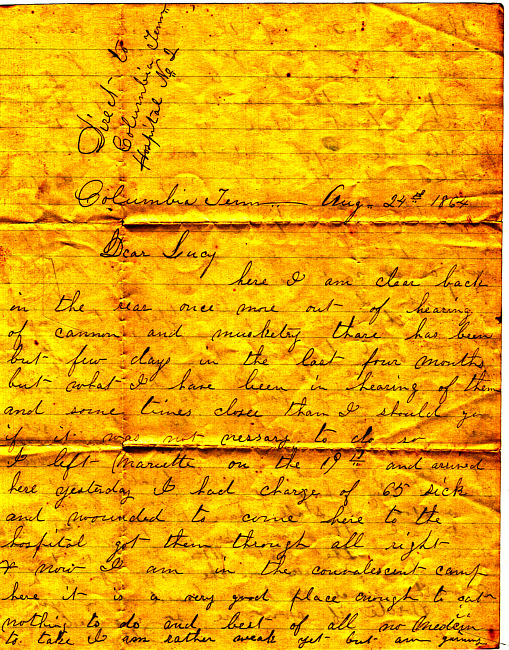 Direct to
Columbia Tenn
Hospital No 2
Columbia Tenn Aug. 24th 1864
Dear Lucy
here I am clear back
in the rear once more out of hearing
of cannon and musketry thare has been
but few days in the last four months
but what I have been in hearing of them
and some times closer than I should go
if it was not nessary to do so
I left Mariette on the 19th and arived
here yesterday I had charge of 65 sick
and wounded to come here to the
hospital got them through all right
& now I am in the convalescent camp
here it is a very good place enough to eat
nothing to do and best of all no medecin
to take I am rather weak yet but am